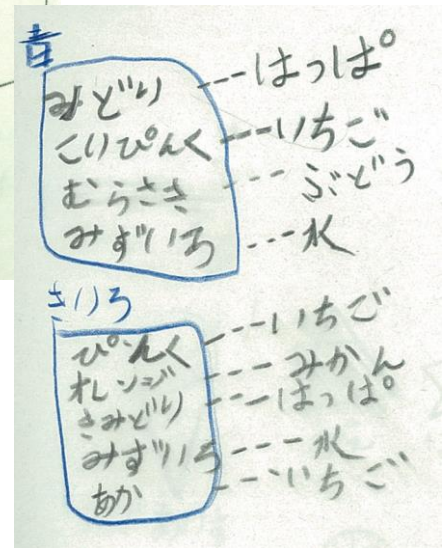 青
みどり---はっぱ
こいぴんく---いちご
むらさき---ぶどう
みずいろ---水
きいろ
ぴんく---いちご
オレンジ---みかん
きみどり---はっぱ
みずいろ---水
あか---いちご